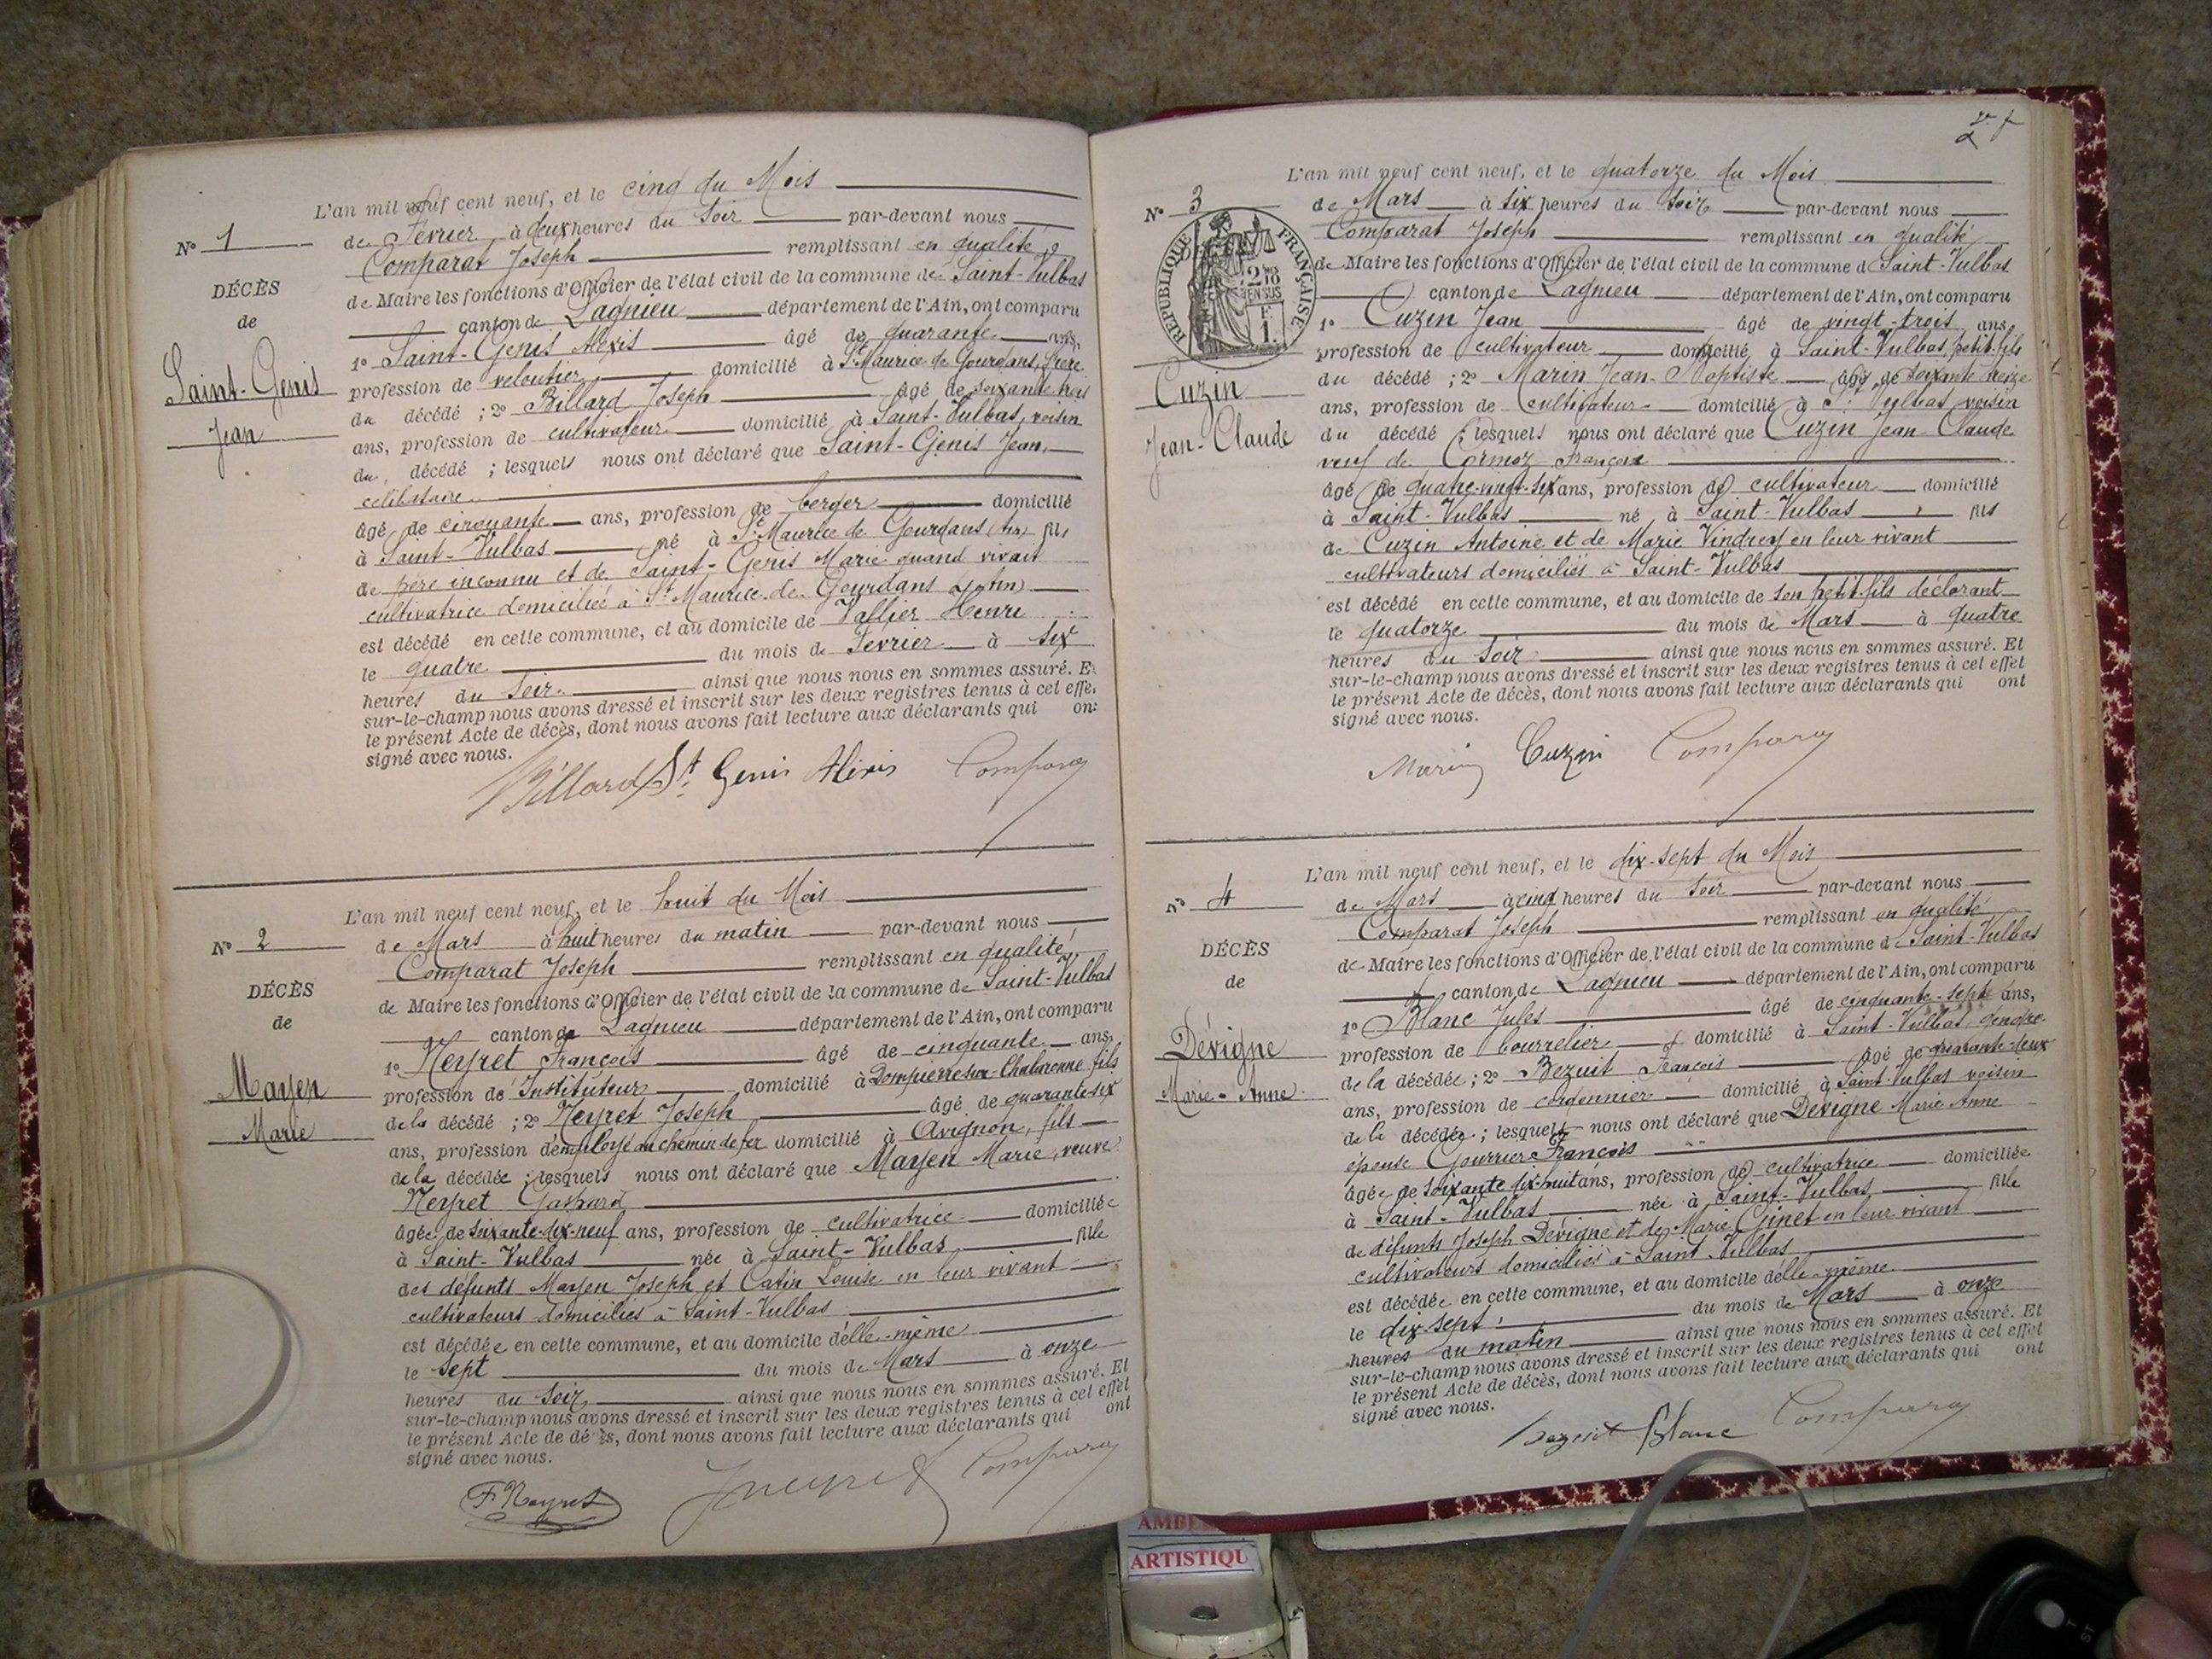 L'an mil neuf cent neuf, et le cinq du Mois
N° 1
de Février à deux heures du Soir par-devant nous
Comparat Joseph remplissant en qualité
DÉCÈS
de Maire les fonctions d'Officier de l'état civil de la commune de Saint-Vulbas
de
canton de Lagnieu département de l'Ain, ont comparu
1° Saint-Genis Alexis âgé de quarante ans,
Saint-Genis
profession de veloutier domicilié à St Maurice de Gourdans, frère
Jean
du décédé ; 2° Billard Joseph âgé de soixante trois
ans, profession de cultivateur domicilié à Saint-Vulbas, voisin
du décédé ; lesquels nous ont déclaré que Saint-Genis Jean,
célibataire
âgé de cinquante ans, profession de berger domicilié
à Saint-Vulbas né à St Maurice de Gourdans (Ain) fils
de père inconnu et de Saint-Genis Marie quand vivait
cultivatrice domiciliée à St Maurice de Gourdans (Ain)
est décédé en cette commune, et au domicile de Vallier Henri
le quatre du mois de Février à six
heures du Soir ainsi que nous nous en sommes assuré. Et
sur-le-champ nous avons dressé et inscrit sur les deux registres tenus à cet effet
le présent Acte de décès, dont nous avons fait lecture aux déclarants qui ont
signé avec nous.
Billard St Genis Alexis Comparat
L'an mil neuf cent neuf, et le huit du Mois
N° 2
de Mars à huit heures du matin par-devant nous
Comparat Joseph remplissant en qualité
DÉCÈS
de Maire les fonctions d'Officier de l'état civil de la commune de Saint-Vulbas
de
canton de Lagnieu département de l'Ain, ont comparu
1° Neyret François âgé de cinquante ans,
Mayen
profession d'Instituteur domicilié à Dompierre sur Chalaronne fils
Marie
de la décédé ; 2° Neyret Joseph âgé de quarante-six
ans, profession d'employé au chemin de fer domicilié à Avignon, fils
de la décédée ; lesquels nous ont déclaré que Mayen Marie, veuve
Neyret Gaspard
âgée de soixante-dix-neuf ans, profession de cultivatrice domiciliée
à Saint-Vulbas née à Saint-Vulbas fille
des défunts Mayen Joseph et Catin Louise en leur vivant
cultivateurs domiciliés à Saint-Vulbas
est décédée en cette commune, et au domicile d'elle-même
le sept du mois de Mars à onze
heures du Soir ainsi que nous nous en sommes assuré. Et
sur-le-champ nous avons dressé et inscrit sur les deux registres tenus à cet effet
le présent Acte de décès, dont nous avons fait lecture aux déclarants qui ont
signé avec nous.
F. Neyret J Neyret Comparat
2
L'an mil neuf cent neuf, et le quatorze du Mois
N° 3
de Mars à six heures du Soir par-devant nous
Comparat Joseph remplissant en qualité
RÉPUBLIQUE FRANÇAISE
de Maire les fonctions d'Officier de l'état civil de la commune de Saint-Vulbas
canton de Lagnieu département de l'Ain, ont comparu
1° Cuzin Jean âgé de vingt-trois ans,
profession de cultivateur domicilié à Saint-Vulbas, petit-fils
Cuzin
du décédé ; 2° Marin Jean-Baptiste âgé de soixante treize
ans, profession de cultivateur domicilié à St Vulbas voisin
Jean-Claude
du décédé ; lesquels nous ont déclaré que Cuzin Jean-Claude
veuf de Cormoz Françoise
âgé de quatre-vingt-six ans, profession de cultivateur domicilié
à Saint-Vulbas né à Saint-Vulbas fils
de Cuzin Antoine et de Marie Vindrey en leur vivant
cultivateurs domiciliés à Saint-Vulbas
est décédé en cette commune, et au domicile de son petit-fils déclarant
le quatorze du mois de Mars à quatre
heures du Soir ainsi que nous nous en sommes assuré. Et
sur-le-champ nous avons dressé et inscrit sur les deux registres tenus à cet effet
le présent Acte de décès, dont nous avons fait lecture aux déclarants qui ont
signé avec nous.
Marin Cuzin Comparat
L'an mil neuf cent neuf, et le dix-sept du Mois
N° 4
de Mars à cinq heures du Soir par-devant nous
Comparat Joseph remplissant en qualité
DÉCÈS
de Maire les fonctions d'Officier de l'état civil de la commune de Saint-Vulbas
de
canton de Lagnieu département de l'Ain, ont comparu
1° Blanc Jules âgé de cinquante-sept ans,
Dévigne
profession de bourrelier domicilié à Saint-Vulbas, gendre
Marie-Anne
de la décédée ; 2° Bezuit François âgé de quarante-deux
ans, profession de cordonnier domicilié à Saint-Vulbas voisin
de la décédée ; lesquels nous ont déclaré que Dévigne Marie Anne
épouse Gourrier François
âgée de soixante dix-huit ans, profession de cultivatrice domiciliée
à Saint-Vulbas née à Saint-Vulbas fille
de défunts Joseph Dévigne et de Marie Ginet en leur vivant
cultivateurs domiciliés à Saint-Vulbas
est décédée en cette commune, et au domicile d'elle-même
le dix-sept du mois de Mars à onze
heures du matin ainsi que nous nous en sommes assuré. Et
sur-le-champ nous avons dressé et inscrit sur les deux registres tenus à cet effet
le présent Acte de décès, dont nous avons fait lecture aux déclarants qui ont
signé avec nous.
Bezuit Blanc Comparat
ARTISTIQU